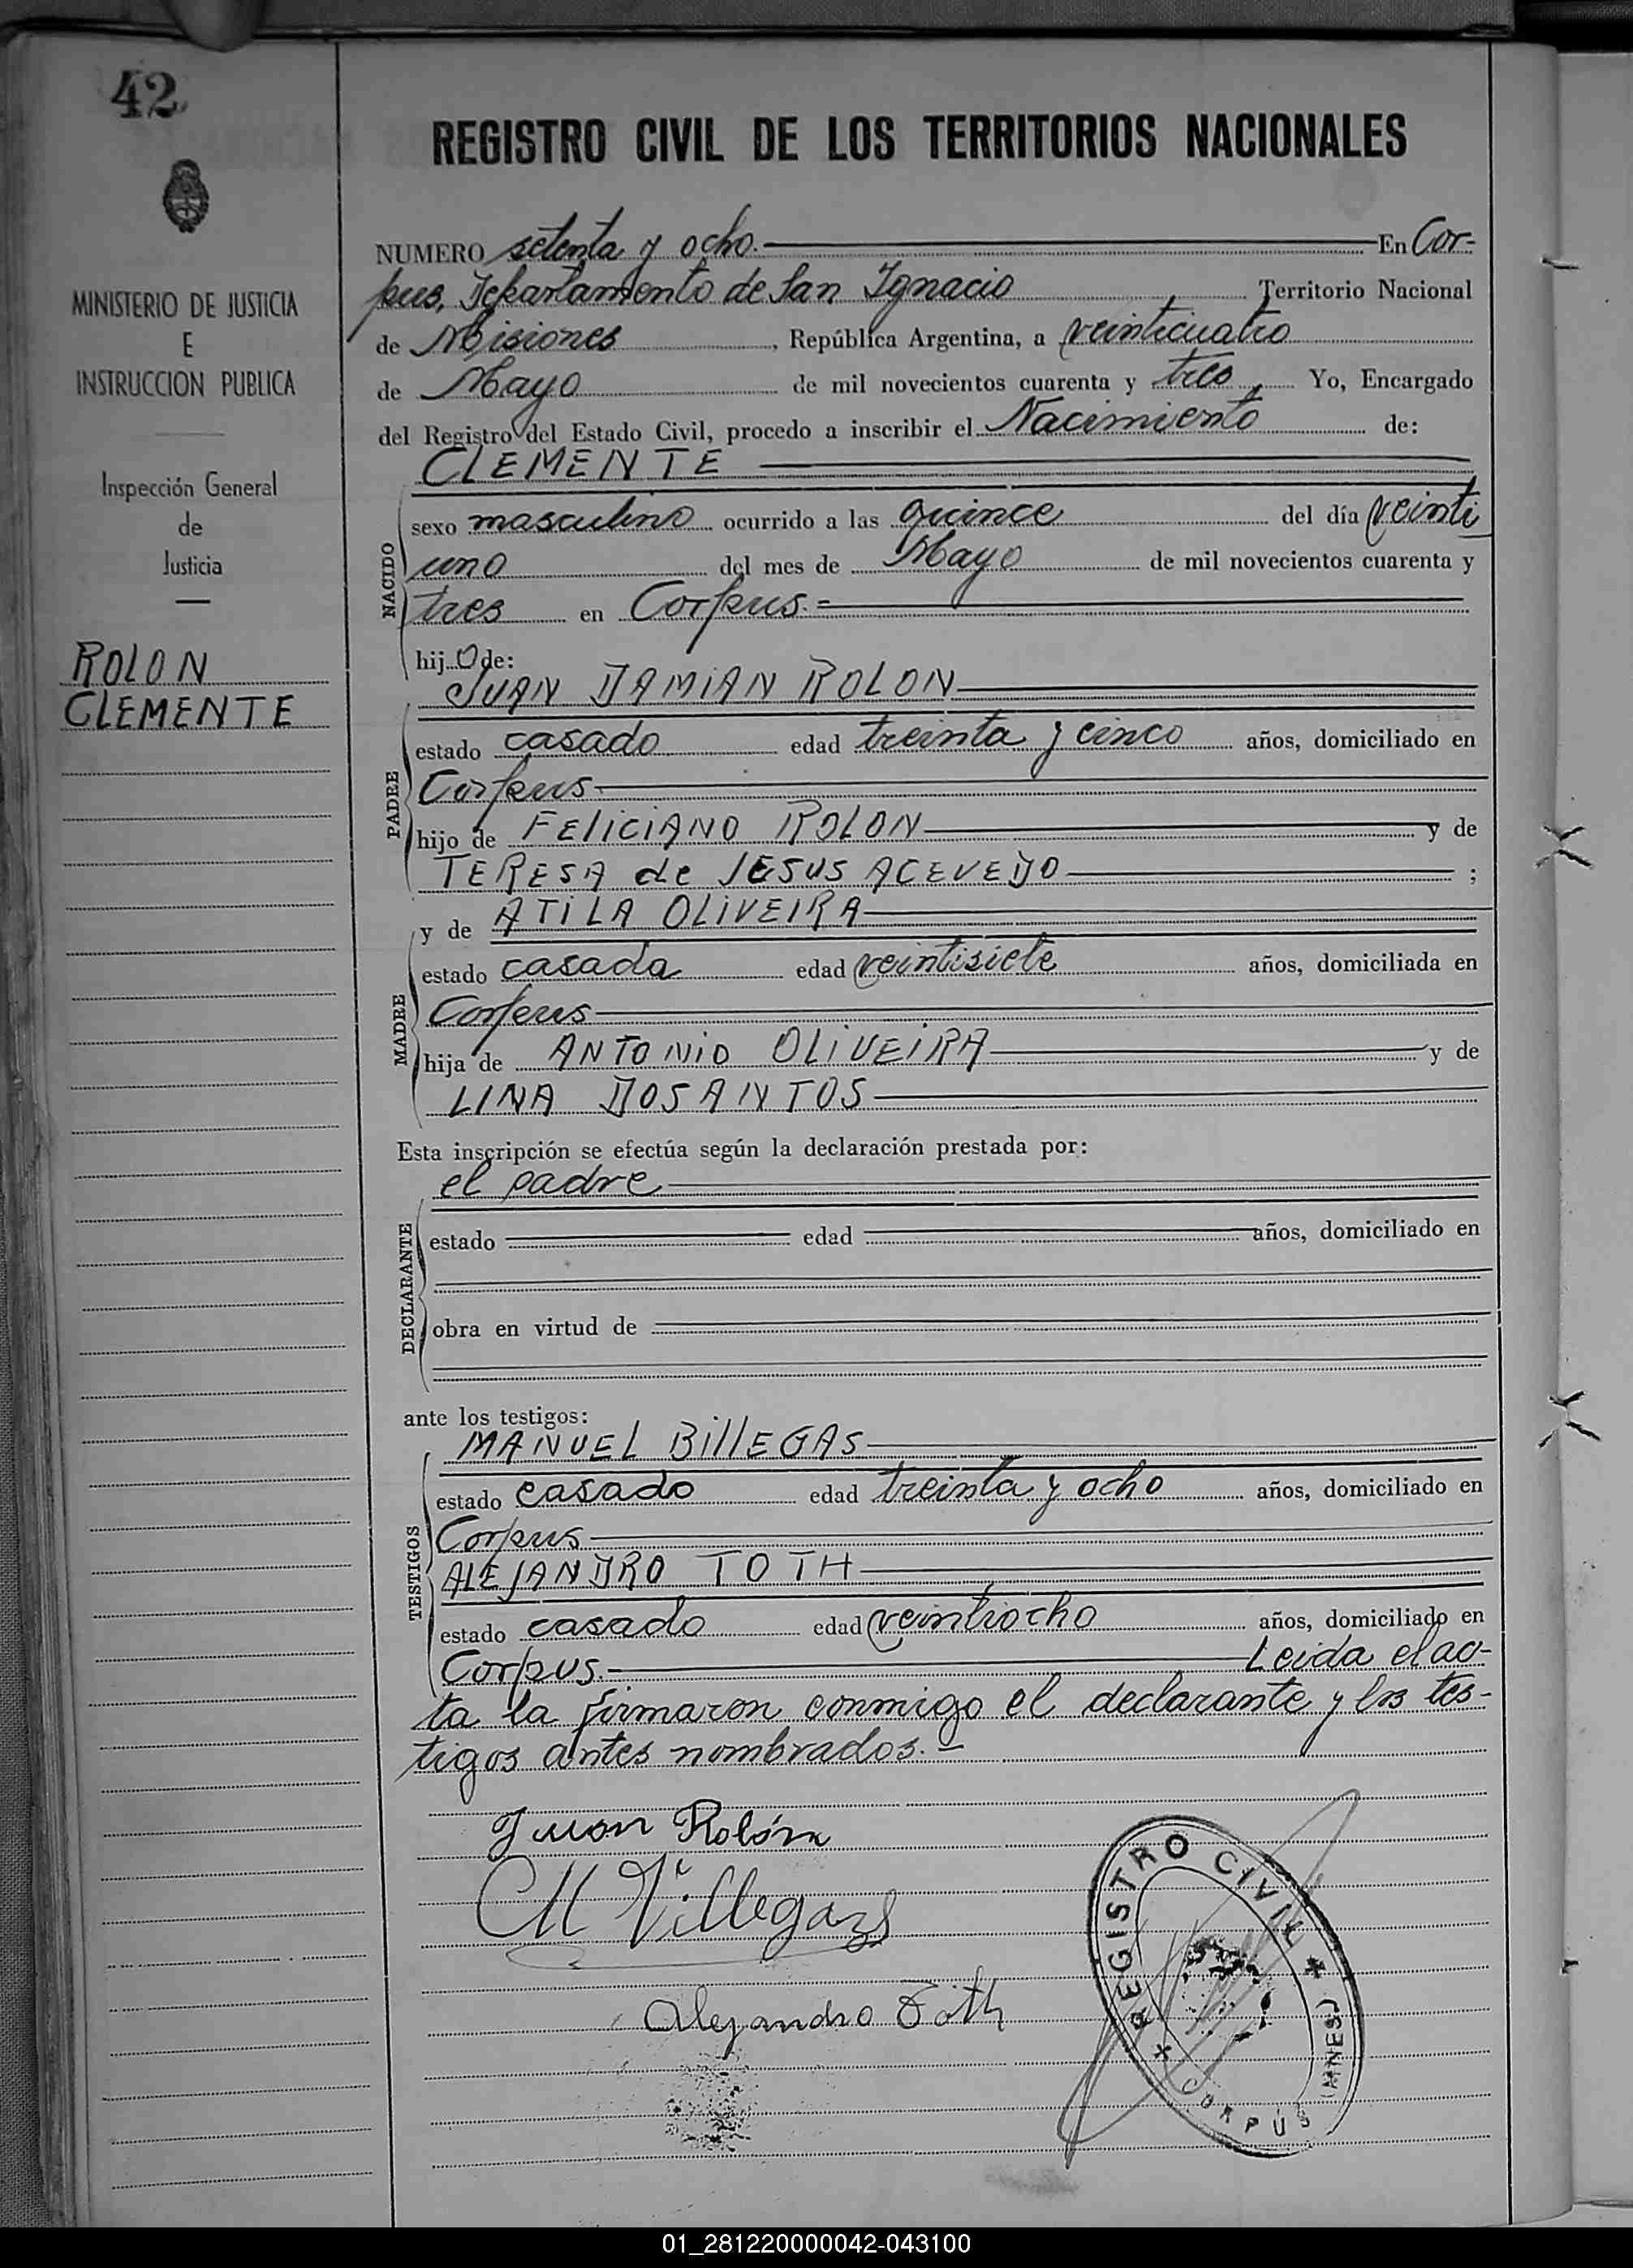 42
REGISTRO CIVIL DE LOS TERRITORIOS NACIONALES
MINISTERIO DE JUSTICIA
E
INSTRUCCION PUBLICA
Inspección General
de
Justicia
ROLON
CLEMENTE
NUMERO setenta y ocho. En Cor-
pus, Departamento de San Ignacio Territorio Nacional
de Misiones, República Argentina, a veinticuatro
de Mayo de mil novecientos cuarenta y tres Yo, Encargado
del Registro del Estado Civil, procedo a inscribir el Nacimiento de:
CLEMENTE
NACIDO
sexo masculino ocurrido a las quince del día veinti
uno del mes de Mayo de mil novecientos cuarenta y
tres en Corpus.=
hijo de:
JUAN DAMIAN ROLON
PADRE
estado casado edad treinta y cinco años, domiciliado en
Corpus
hijo de FELICIANO ROLON y de
TERESA de JESUS ACEVEDO ;
y de ATILA OLIVEIRA
MADRE
estado casada edad veintisiete años, domiciliada en
Corpus
hija de ANTONIO OLIVEIRA y de
LINA DOSANTOS
Esta inscripción se efectúa según la declaración prestada por:
el padre
DECLARANTE
estado edad años, domiciliado en
obra en virtud de
ante los testigos:
MANUEL BILLEGAS
TESTIGOS
estado casado edad treinta y ocho años, domiciliado en
Corpus
ALEJANDRO TOTH
estado casado edad veintiocho años, domiciliado en
Corpus.- Leida el ac-
ta la firmaron conmigo el declarante y los tes-
tigos antes nombrados.-
Juan Rolón
M Villegas
Alejandro Toth
REGISTRO CIVIL
* CORPUS (MNES) *
01_281220000042-043100